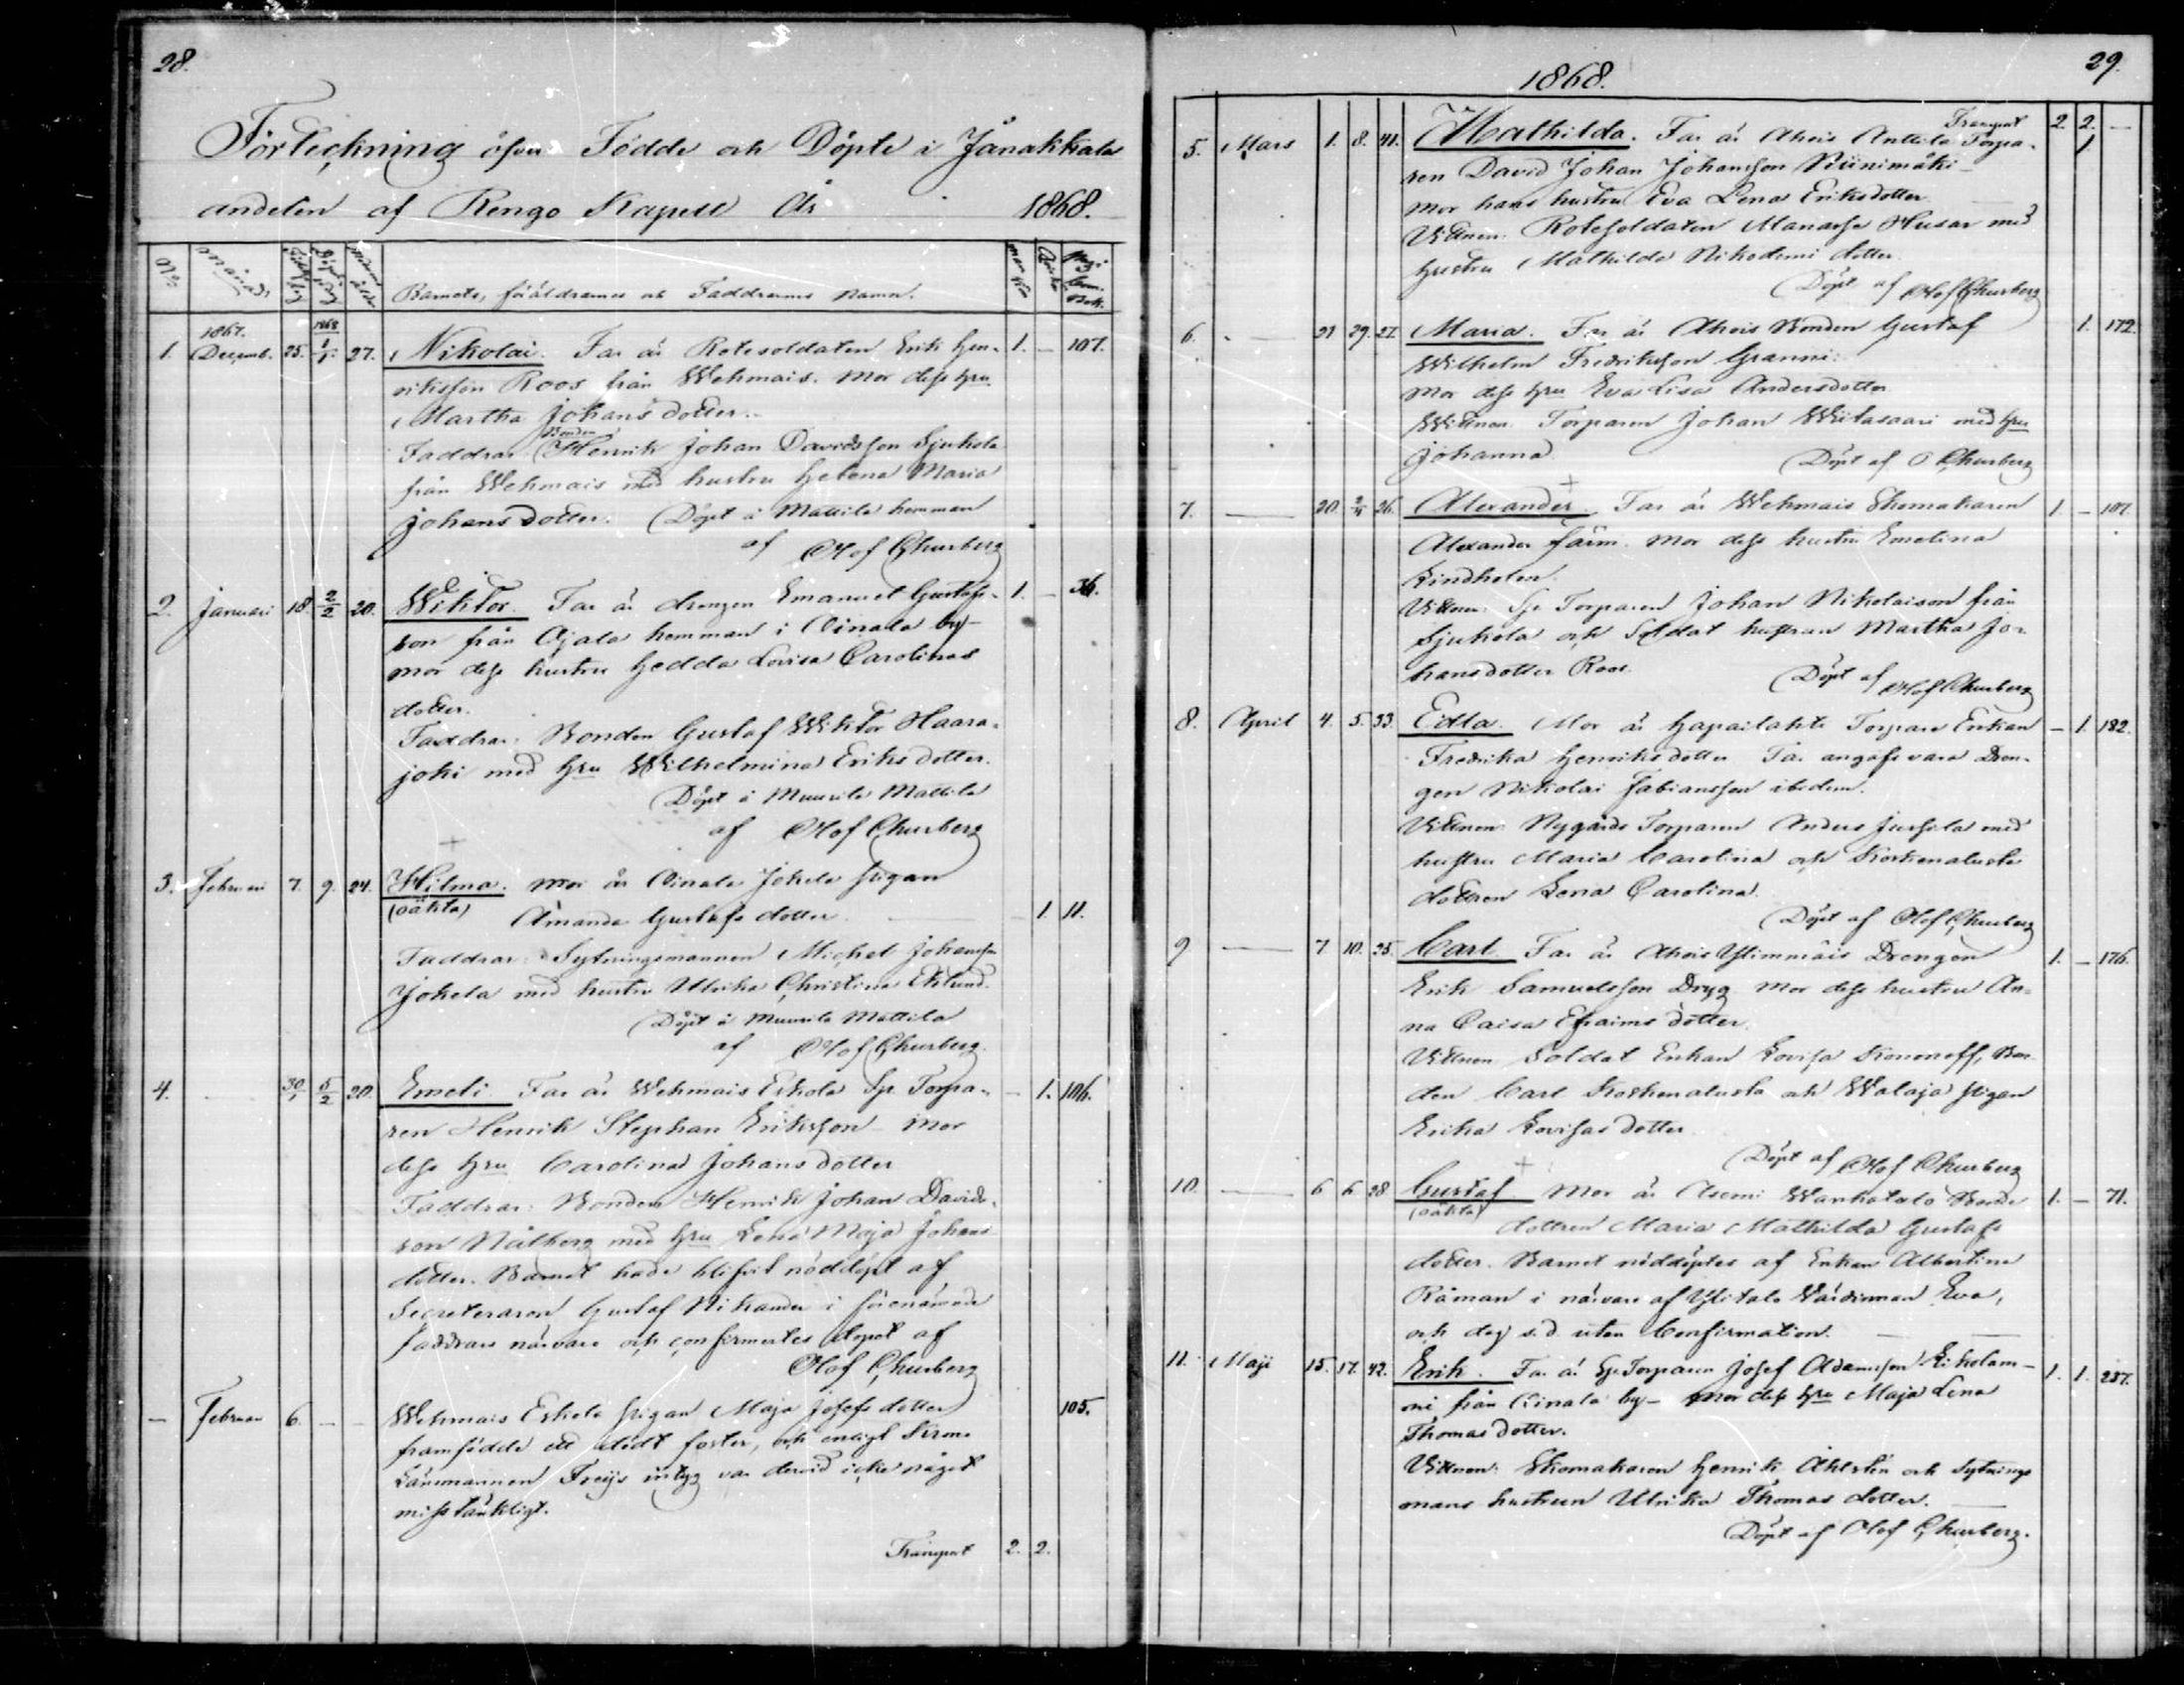 28.
Förteckning öfver Födde och Döpte i Janakkala
andelen af Rengo Kapell År 1868.
No Månad Födelsedag Döpelsedag Moders ålder Barnets, föräldrarnes och Faddrarnes namn. Mankön Qvinkön Pag. i Com. Bok.
1. 1867. Decemb. 25. 1868 1/1 27. Nikolai. Far är Rotesoldaten Erik Hen- 1. — 107.
riksson Roos från Wehmais. Mor dess hru
Martha Johansdotter.
Faddrar Bonden Henrik Johan Davidsson Sjukola
från Wehmais med hustru Helena Maria
Johansdotter. Döpt i Mattila hemman
af Olof Churberg
2. Januari 18. 2/2 20. Wiktor. Far är drengen Emanuel Gustafs- 1. — 36.
son från Ojala hemman i Vinala by-
mor dess hustru Hedda Lovisa Carolinas
dotter.
Faddrar: Bonden Gustaf Wiktor Haara-
joki med hru Wilhelmina Eriksdotter.
Döpt i Muurila Mattila
af Olof Churberg
3. Februari 7. 9. 24. Hilma. Mor är Vinala Jokela pigan
(oäkta) Amanda Gustafsdotter. — 1. 11.
Faddrar: Sytningsmannen Michel Johansson
Jokela med hustru Ulrika Christina Eklund.
Döpt i Muurila Mattila
af Olof Churberg.
4. 30/1 5/2 20. Emeli Far är Wehmais Eskola Sp. Torpa- — 1. 106.
ren Henrik Stephan Eriksson mor
dess hru Carolina Johansdotter
Faddrar: Bonden Henrik Johan Davids-
son Nälberg med hru Lena Maja Johans
dotter. Barnet hade blifvit nöddöpt af
Secreteraren Gustaf Nikander i förenämnde
faddrars närvaro och confirmertes dopet af
Olof Churberg
— Februari 6. — — Wehmais Eskola pigan Maja Josefsdotter 105.
framfödde ett dödt foster, och enligt Krono
Länsmannen Freijs intyg var dervid icke något
misstänkligt.
Transport 2. 2.
1868. 29.
Transport 2. 2. —
5. Mars 1. 8. 41. Mathilda. Far är Ahois Anttila Torpa- 1.
ren David Johan Johansson Riinimäki —
mor hans hustru Eva Lena Eriksdotter.
Vittnen: Rotesoldaten Manasse Husar med
hustru Mathilda Nikodemi dotter.
Döpt af Olof Churberg
6. — 21 29. 27. Maria. Far är Ahois Bonden Gustaf 1. 172.
Wilhelm Fredriksson Granni:
mor dess hru Eva Lisa Andersdotter
Wittnen: Torparen Johan Wiitasaari med hru
Johanna. Döpt af O Churberg
7. — 20. 2/4 26. Alexander. Far är Wehmais Skomakaren 1. — 107.
Alexander Färm. mor dess hustru Emelina
Lindholen.
Vittnen: Sp Torparen Johan Nikolaison från
Sjukola och Soldat hustrun Martha Jo-
hansdotter Roos. Döpt af Olof Churberg
8. April 4. 5. 33. Edla. Mor är Hapailahti Torpare Enkan — 1. 182.
Fredrika Henriksdotter Far angafs vara Dren-
gen Nikolai Fabiansson ibidem.
Vittnen: Nygårds Torparen Anders Jussila med
hustru Maria Carolina och Koskenalusta
dottren Lena Carolina.
Döpt af Olof Churberg
9 — 7 10. 25. Carl. Far är Ahois Ylimmäis Drengen 1. — 176.
Erik Samuelsson Dryg mor dess hustru An-
na Caisa Efraims dotter.
Vittnen Soldat Enkan Lovisa Kononoff, Bon-
den Carl Koskenalusta och Walaja pigan
Erika Lovisas dotter
Döpt af Olof Churberg
10. — 6 6 28 Gustaf. Mor är Asemi Wanhatalo Bonde 1. — 71.
(oäkta) dottren Maria Mathilda Gustafs
dotter. Barnet nöddöptes af Enkan Albertina
Råman i närvaro af Ylitalo Värdinnan Eva,
och dog s.d. utan Confirmation.
11. Maji 15. 17. 42. Erik. Far är Sp. Torparen Josef Adamsson 1. 1. 257.
från Vinala by- mor dess hru Maja Lena
Thomasdotter.
Vittnen: Skomakaren Henrik Åhlsten och Sytnings
mans hustrun Ulrika Thomas dotter.
Döpt af Olof Churberg.